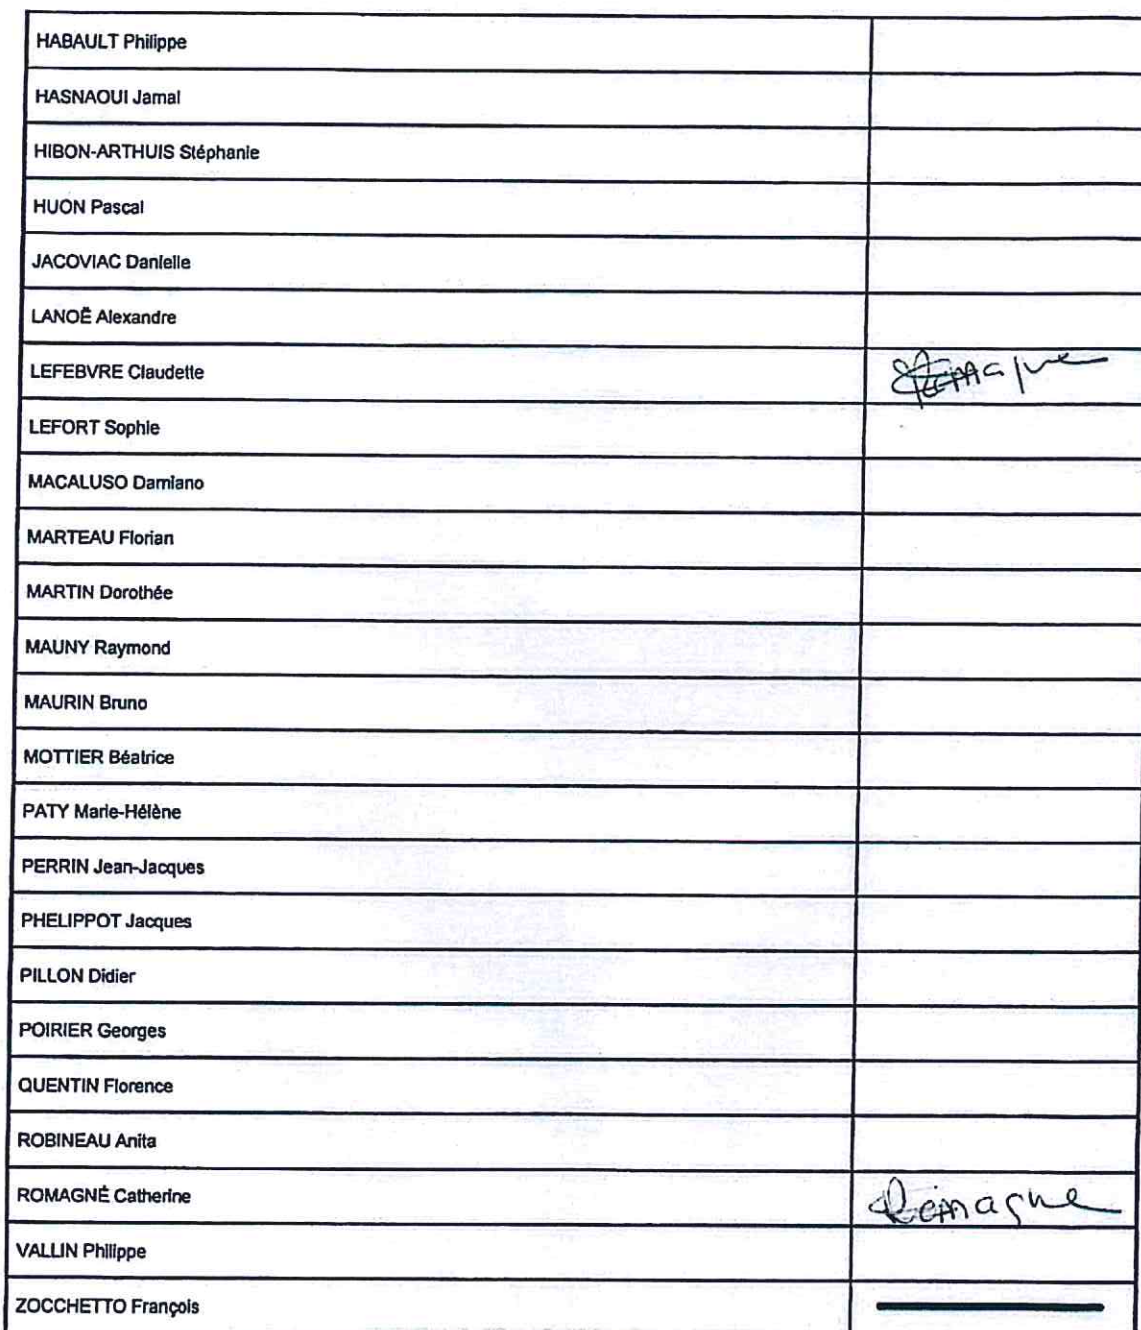 HABAULT Philippe
HASNAOUI Jamal
HIBON-ARTHUIS Stéphanie
HUON Pascal
JACOVIAC Danielle
LANOË Alexandre
LEFEBVRE Claudette
LEFORT Sophie
MACALUSO Damiano
MARTEAU Florian
MARTIN Dorothée
MAUNY Raymond
MAURIN Bruno
MOTTIER Béatrice
PATY Marie-Hélène
PERRIN Jean-Jacques
PHELIPPOT Jacques
PILLON Didier
POIRIER Georges
QUENTIN Florence
ROBINEAU Anita
ROMAGNÉ Catherine
VALLIN Philippe
ZOCCHETTO François